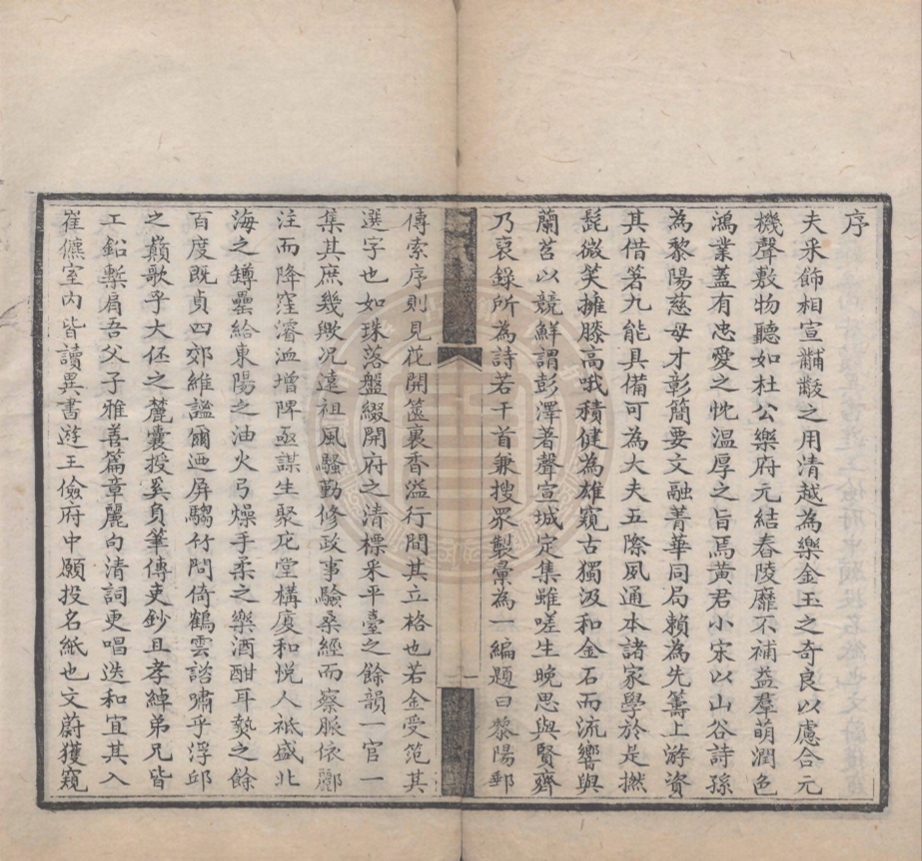 序
夫采飾相宣黼黻之用清越為樂金玉之奇良以慮合元
機聲敷物聽如杜公樂府元結舂陵靡不補益羣萌潤色
鴻業蓋有忠愛之忱溫厚之旨焉黃君小宋以山谷詩孫
為黎陽慈母才彰簡要文融菁華同局賴為先籌上游資
其借箸九能具備可為大夫五際夙通本諸家學於是撚
髭微笑擁膝高哦積健為雄窺古獨汲和金石而流響與
蘭苕以競鮮謂彭澤著聲宣城定集雖嗟生晚思與賢齊
乃裒錄所為詩若干首兼搜眾製彙為一編題曰黎陽郵
一
傳索序則見花開篋裏香溢行間其立格也若金受笵其
選字也如珠落盤綴開府之清標采平臺之餘韻一官一
集其庶幾歟況遠祖風騷勤修政事驗桑經而察脈依酈
注而降窪濬洫增陴亟謀生聚庀堂構廈和悅人祗盛北
海之罇罍給東陽之油火弓燥手柔之樂酒酣耳熱之餘
百度既貞四郊維謐爾迺屏騶竹問倚鶴雲諮嘯乎浮邱
之巔歌乎大伾之麓囊授奚負筆傳吏鈔且孝綽弟兄皆
工鉛槧肩吾父子雅善篇章麗句清詞更唱迭和宜其入
崔儦室內皆讀異書遊王儉府中願投名紙也文蔚獲窺